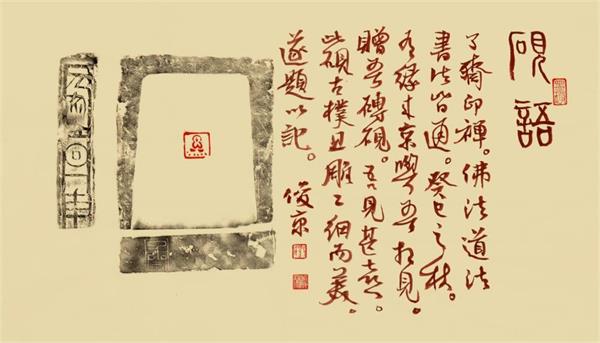 硯語
了齋印禪。佛法道法
書法皆通。癸巳之秋。
有缘来京與吾相見。
贈吾磚硯。吾見甚喜。
此硯古樸且雕工細而美。
遂題以記。
俊京